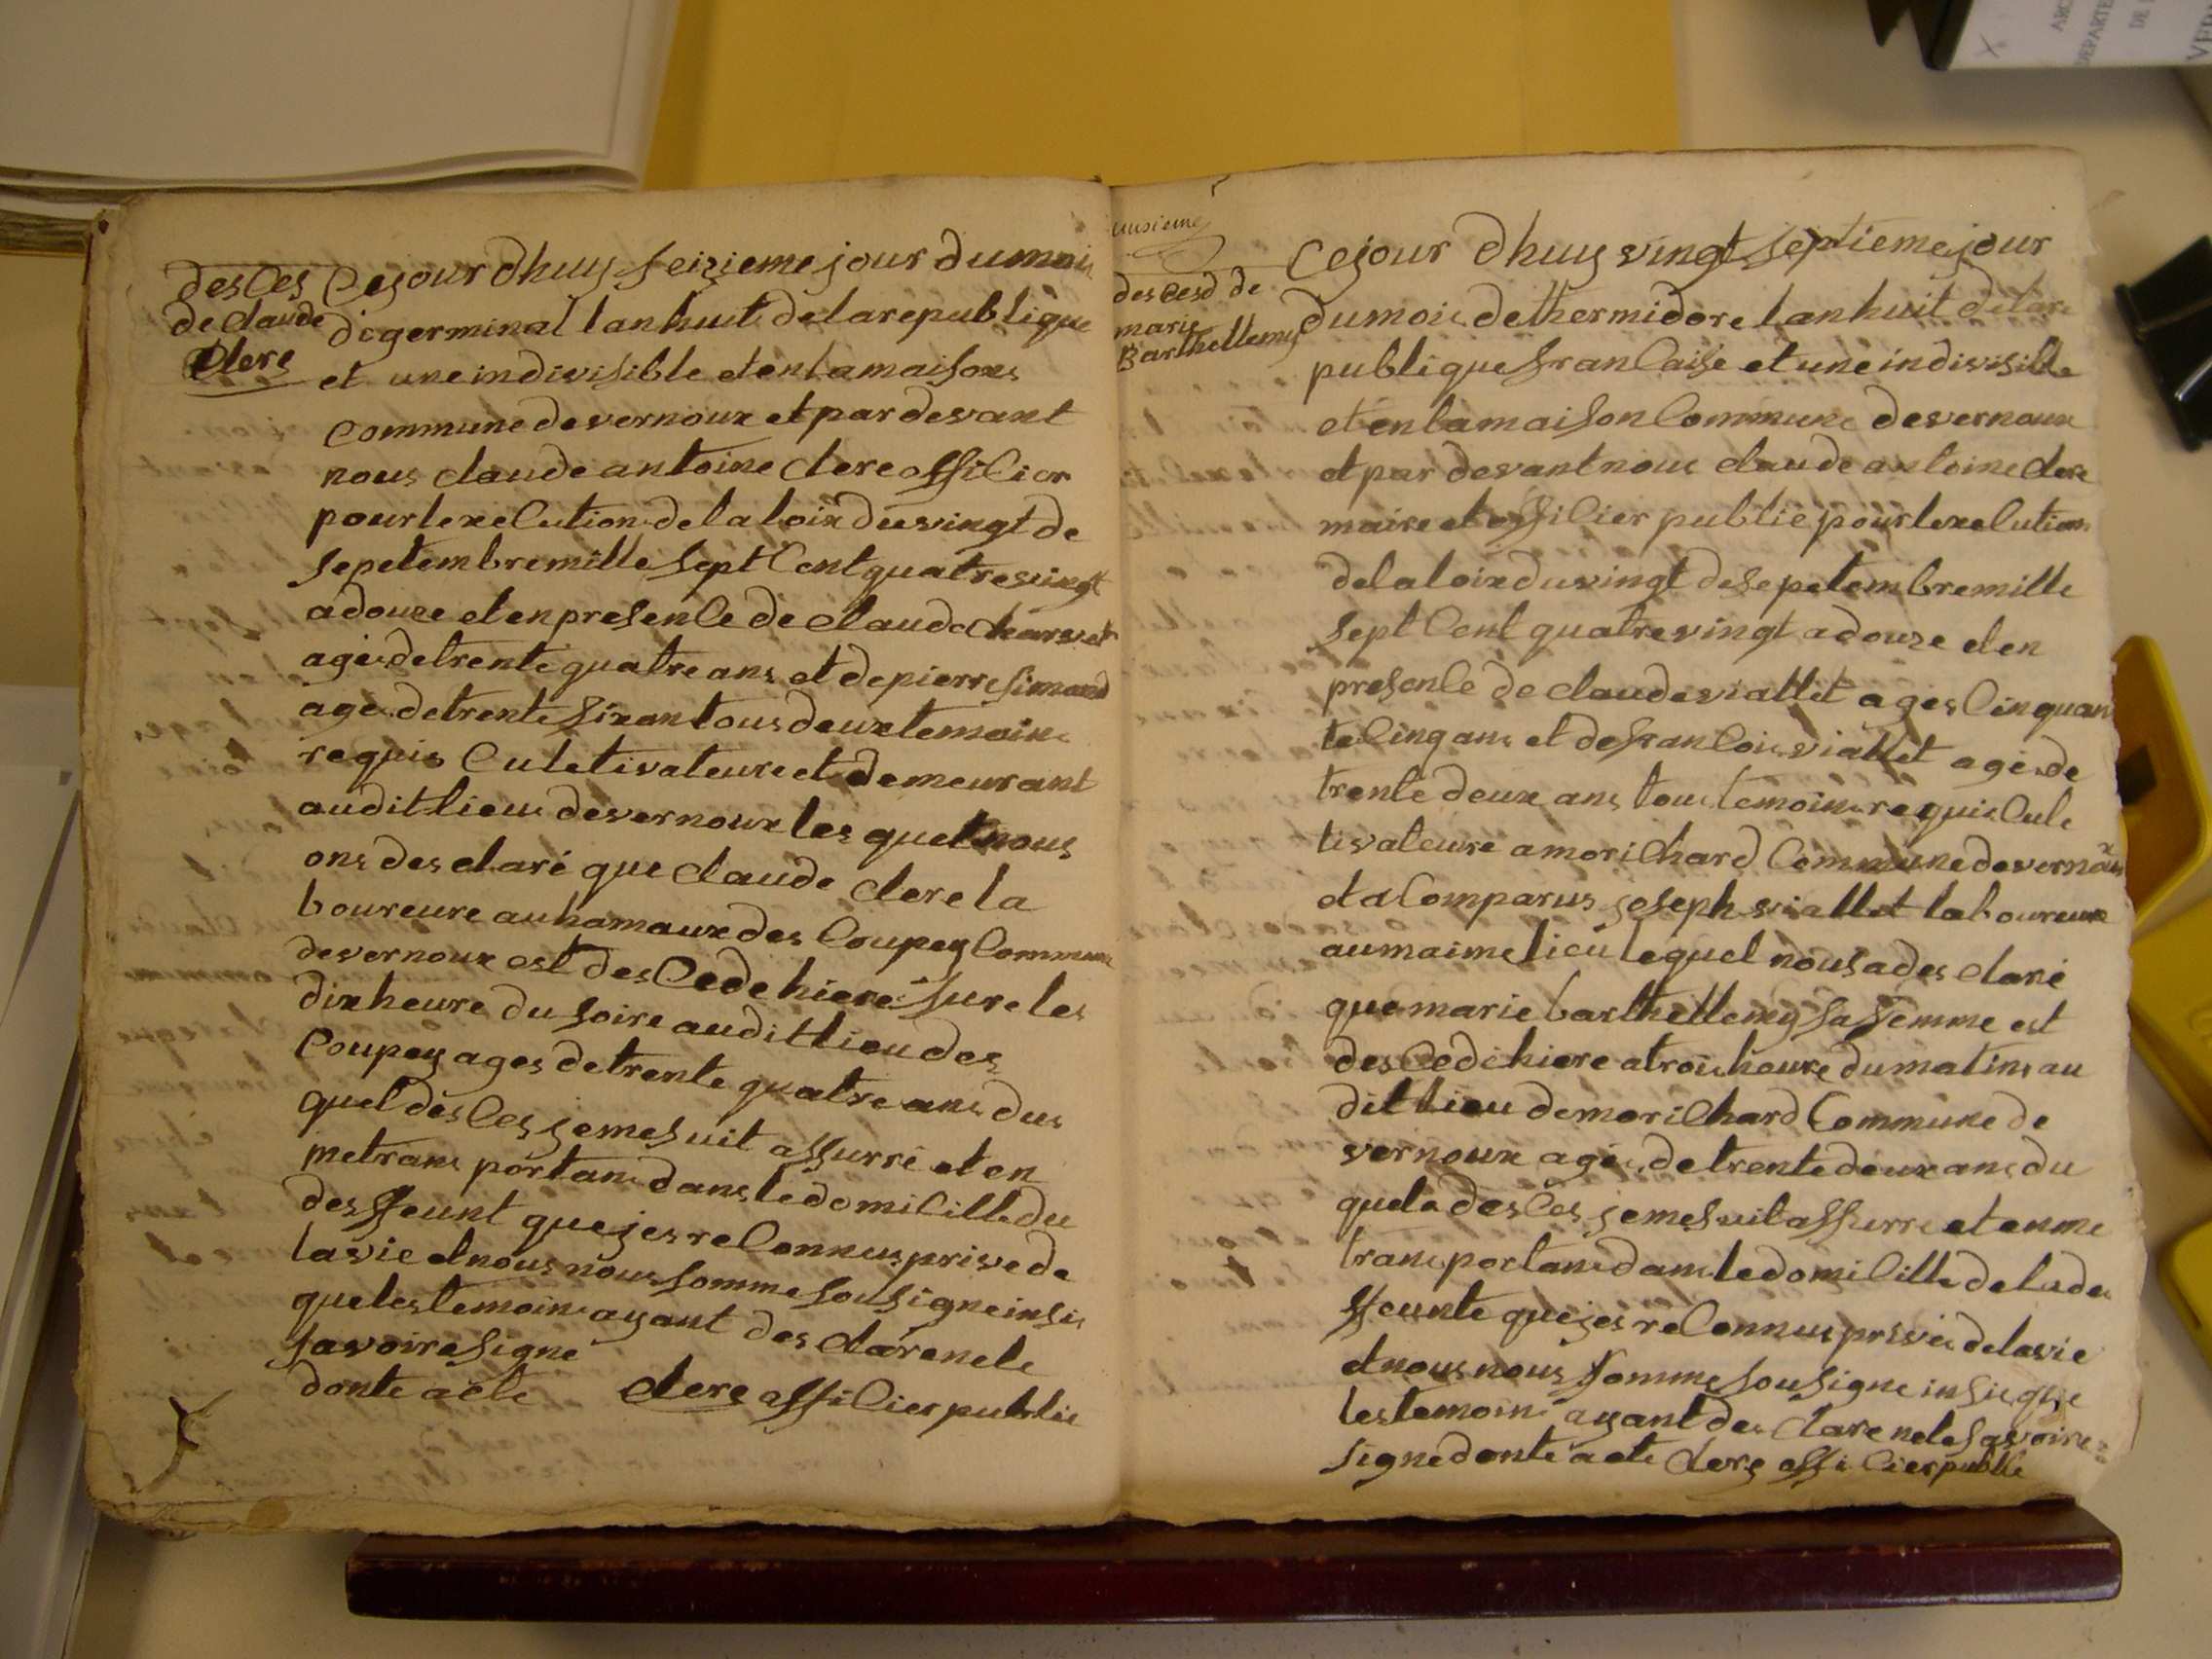 desces
de claude
Clerc
Cejour dhuy seizieme jour du mois
de germinal lan huit de la republique
et une indivisible et en la maisons
commune de vernoux et par devant
nous claude antoine clere officier
pour lexecution de la loix du vingt de
sepetembre mille sept cent quatre vingt
a douze et en presence de claude charvet
ages de trente quatre ans et de pierre simand
age de trente six an tous deux temoins
requis culetivateure et demeurant
audit lieu de vernoux les quel nous
ons des claré que claude clere la
boureure au hamaux des coupey commune
de vernoux est des cede hiere sure les
dix heure du soire audit lieu des
coupey ages de trente quatre ans dus
quel desces je me suit assurré et en
me trans portans dans le domicille du
desffeunt que jes reconnus prive de
la vie et nous nous somme sousigne insis
que les temoins ayant des claré ne le
savoire signe
donte acte clere officier public
unsieme
des cesd de
marie
Barthellemy
Cejour dhuy vingt septieme jour
du mois de thermidore lan huit de la re
publique francaise et une indivisible
et en la maison commune de vernoux
et par devant nous claude antoine clere
maire et officier public pour lexecution
de la loix du vingt de sepetembre mille
sept cent quatre vingt a douze et en
presence de claude viallet ages cinquan
te cinq ans et de francois viallet agés de
trente deux ans tous temoins requis cule
tivateure a morichard commune de vernoux
et a comparus joseph viallet laboureure
au maime lieu lequel nous a des claré
que marie barthellemy sa femme est
des cede hiere a trois heure du matins au
dit lieu de morichard commune de
vernoux agés de trente deux ans du
quele desces je me suit assurre et en me
trans portans dans le domicille de la des
ffeunte que jes reconnus privés de la vie
et nous nous somme sousigne insis que
les temoins ayant des clare ne le savoire
signe donte acte clere officier public